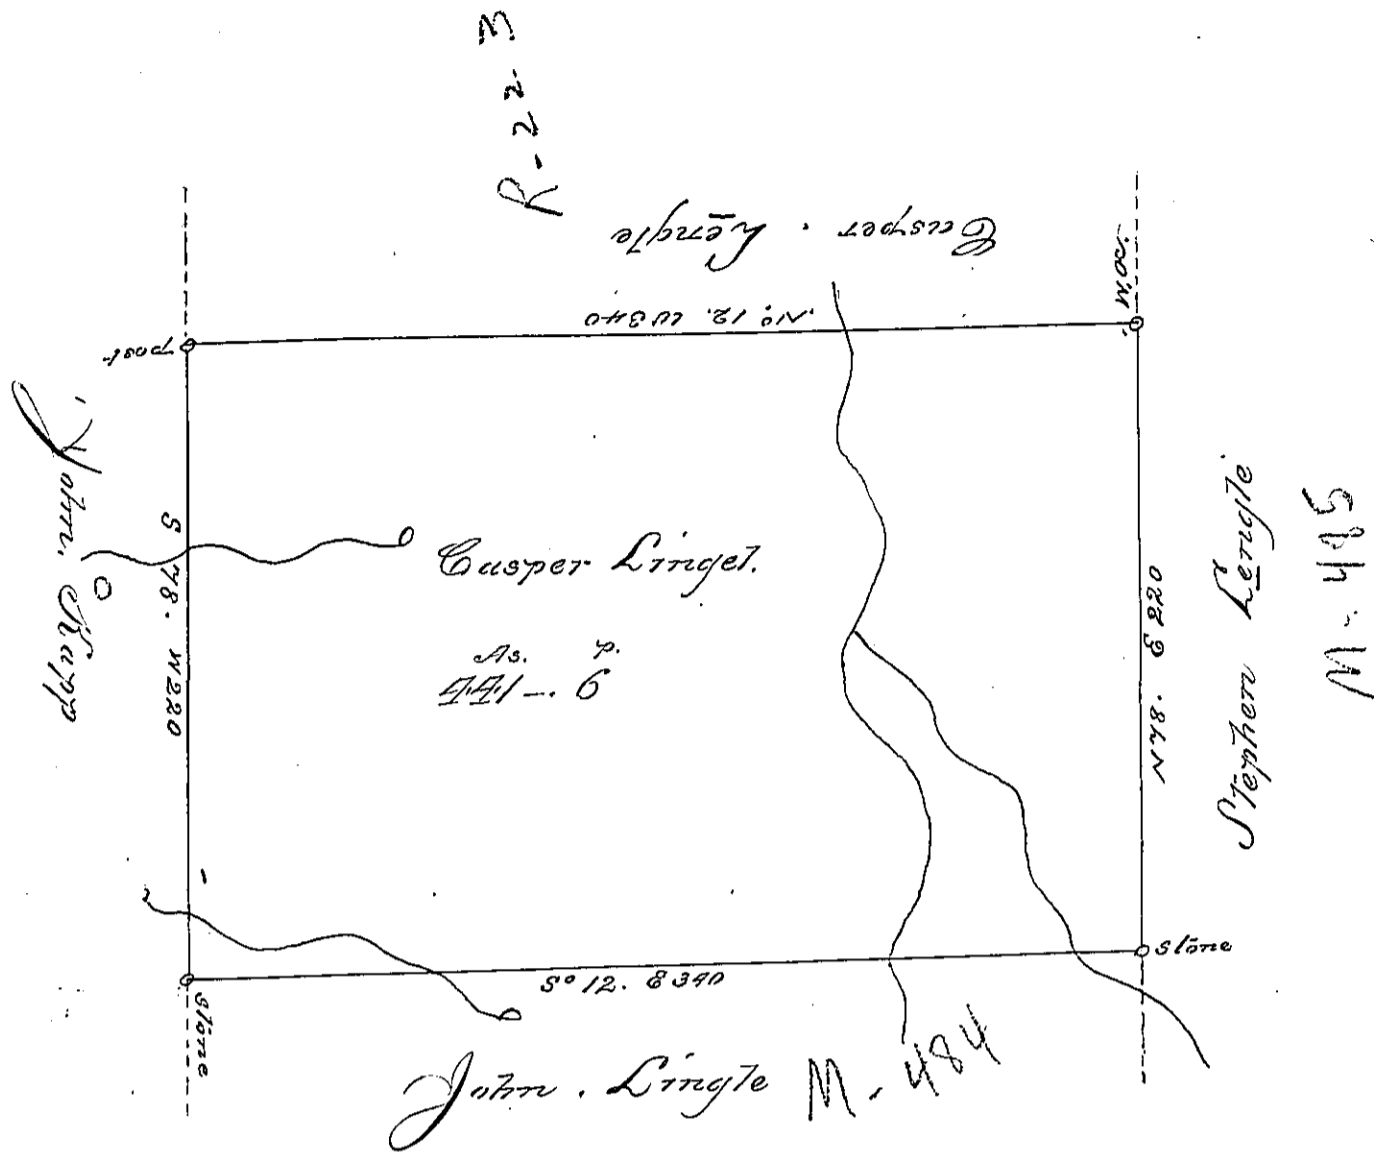 R-22-3
Casper. Lengle
No. 12. W 340
W.O.
post
John. Kupp
S 78. W 220
Casper Lingel.
As. P.
441-. 6
N 78. E 220
Stephen Lengle
M-485
stone
So 12. E 340
stone
John. Lingle
M-484